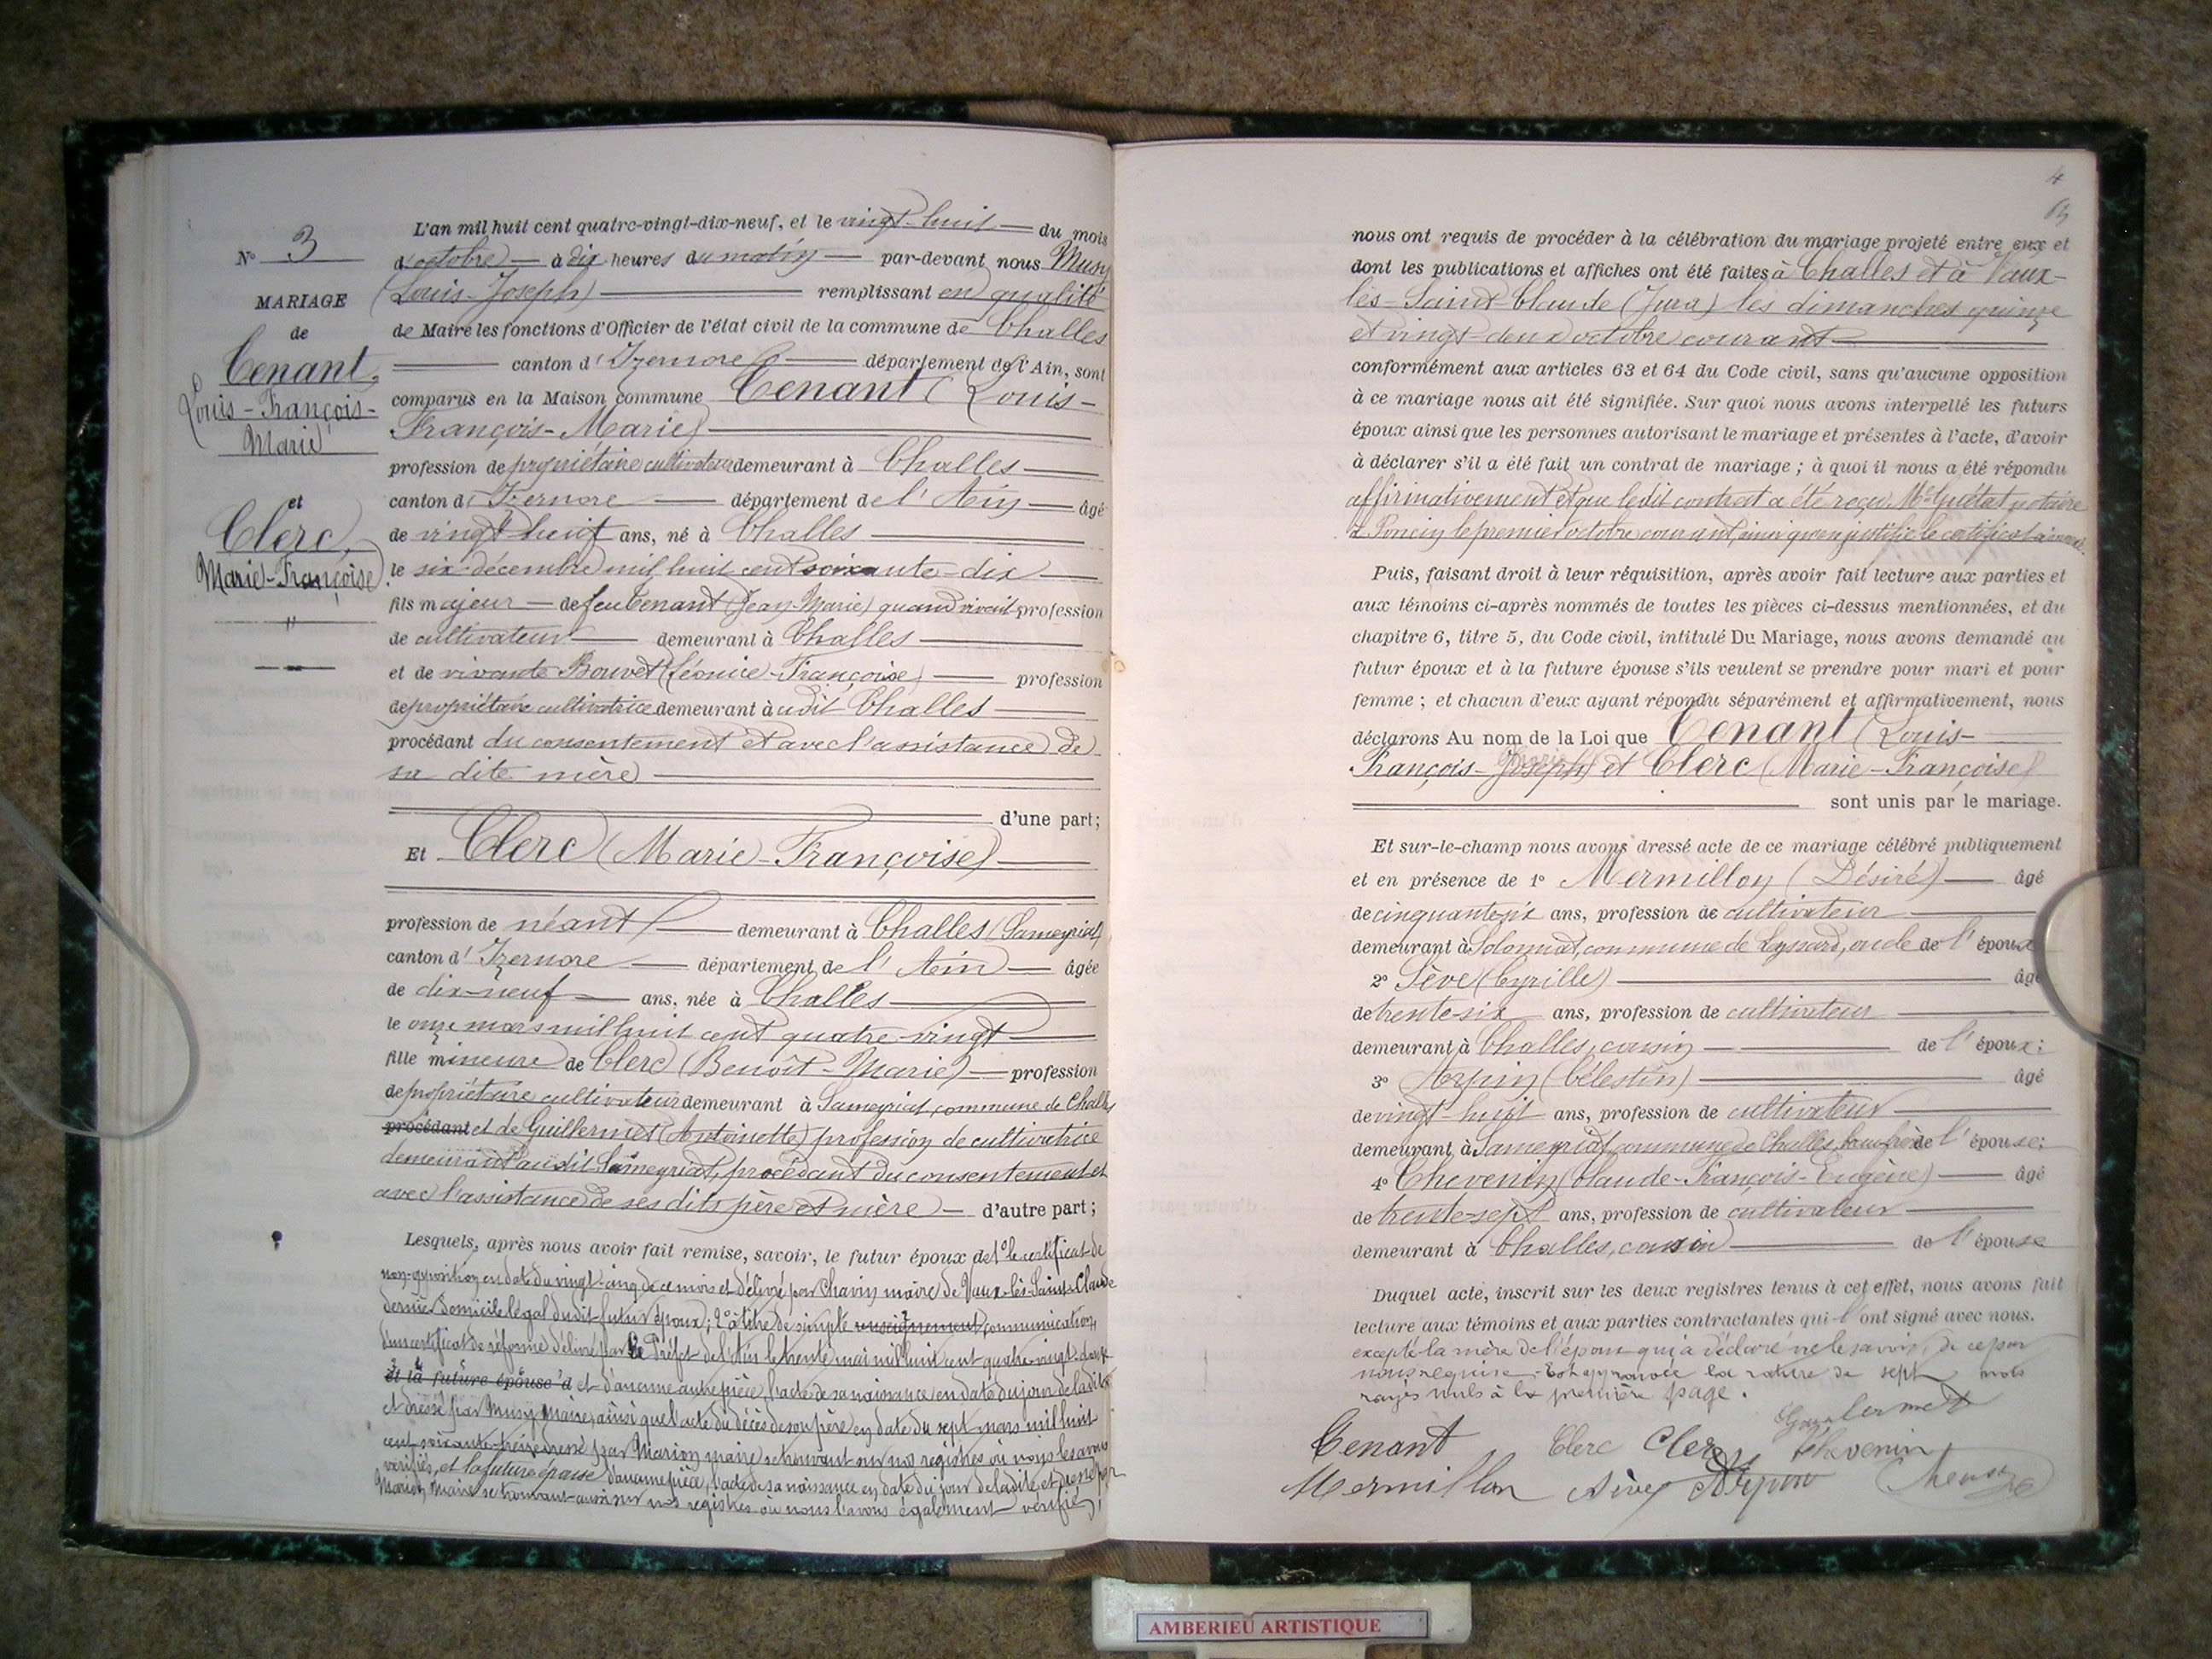 N° 3
MARIAGE
de
Cenant,
Louis-François-
Marie
et
Clerc,
Marie-Françoise
L'an mil huit cent quatre-vingt-dix-neuf, et le vingt-huit du mois
d'octobre à dix heures du matin par-devant nous Musy
(Louis-Joseph) remplissant en qualité
de Maire les fonctions d'Officier de l'état civil de la commune de Challes
canton d'Izernore département de l'Ain, sont
comparus en la Maison commune Cenant (Louis-
François-Marie)
profession de propriétaire cultivateur demeurant à Challes
canton d'Izernore département de l'Ain âgé
de vingt-huit ans, né à Challes
le six décembre mil huit cent soixante-dix
fils majeur de feu Cenant (Jean-Marie) quand vivait profession
de cultivateur demeurant à Challes
et de vivante Bouvet (Léonice-Françoise) profession
de propriétaire cultivatrice demeurant à udit Challes
procédant du consentement et avec l'assistance de
sa dite mère
d'une part;
Et Clerc (Marie-Françoise)
profession de néant demeurant à Challes (Sameyriat)
canton d'Izernore département de l'Ain âgée
de dix-neuf ans, née à Challes
le onze mars mil huit cent quatre-vingt
fille mineure de Clerc (Benoît-Marie) profession
de propriétaire cultivateur demeurant à Sameyriat, commune de Challes
procédant et de Guillermet (Antoinette) profession de cultivatrice
demeurant audit Sameyriat, procédant du consentement et
avec l'assistance de ses dits père et mère d'autre part;
Lesquels, après nous avoir fait remise, savoir, le futur époux de 1° le certificat de
non-opposition en date du vingt-cinq de ce mois et délivré par Chavin maire de Vaux-lès-Saint-Claude
dernier domicile légal dudit futur époux; 2° à titre de simple renseignement communication
d'un certificat de réforme délivré par le Préfet de l'Ain le trente mai mil huit cent quatre-vingt-douze
et la future épouse d et d'aucune autre pièce, l'acte de sa naissance en date du jour de ladite
et dressé par Musy maire, ainsi que l'acte du décès de son père en date du sept mars mil huit
cent soixante-treize dressé par Marion maire se trouvant sur nos registres où nous les avons
vérifiés, et la future épouse d'aucune pièce, l'acte de sa naissance en date du jour de ladite et dressé par
Marion, Maire se trouvant aussi sur nos registres où nous l'avons également vérifié;
4
nous ont requis de procéder à la célébration du mariage projeté entre eux et
dont les publications et affiches ont été faites à Challes et à Vaux-
lès-Saint-Claude (Jura) les dimanches quinze
et vingt-deux octobre courant
conformément aux articles 63 et 64 du Code civil, sans qu'aucune opposition
à ce mariage nous ait été signifiée. Sur quoi nous avons interpellé les futurs
époux ainsi que les personnes autorisant le mariage et présentes à l'acte, d'avoir
à déclarer s'il a été fait un contrat de mariage; à quoi il nous a été répondu
affirmativement et que ledit contrat a été reçu Me Guétat notaire
à Poncin le premier octobre courant, ainsi qu'en justifie le certificat annexé.
Puis, faisant droit à leur réquisition, après avoir fait lecture aux parties et
aux témoins ci-après nommés de toutes les pièces ci-dessus mentionnées, et du
chapitre 6, titre 5, du Code civil, intitulé Du Mariage, nous avons demandé au
futur époux et à la future épouse s'ils veulent se prendre pour mari et pour
femme; et chacun d'eux ayant répondu séparément et affirmativement, nous
déclarons Au nom de la Loi que Cenant (Louis-
François-Joseph) et Clerc (Marie-Françoise)
sont unis par le mariage.
Et sur-le-champ nous avons dressé acte de ce mariage célébré publiquement
et en présence de 1° Mermillon (Désiré) âgé
de cinquante-six ans, profession de cultivateur
demeurant à Solomiat, commune de Leyssard, oncle de l'époux
2° Sève (Cyrille) âgé
de trente-six ans, profession de cultivateur
demeurant à Challes, cousin de l'époux;
3° Arpin (Célestin) âgé
de vingt-huit ans, profession de cultivateur
demeurant à Sameyriat commune de Challes, beau-frère de l'épouse;
4° Chevenin (Claude-François-Eugène) âgé
de trente-sept ans, profession de cultivateur
demeurant à Challes, cousin de l'épouse
Duquel acte, inscrit sur les deux registres tenus à cet effet, nous avons fait
lecture aux témoins et aux parties contractantes qui l'ont signé avec nous.
excepté la mère de l'époux qui a déclaré ne le savoir, de ce par
nous requise. Est approuvée la rature de sept mots
rayés nuls à la première page.
Guillermet
Cenant Clerc Clerc Chevenin
Mermillon Sève Arpin
AMBERIEU ARTISTIQUE